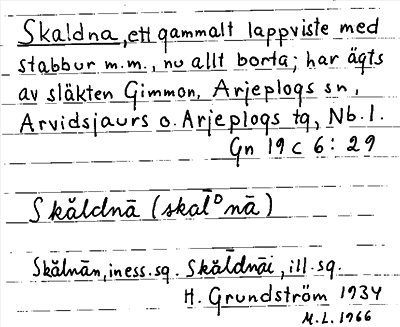 Skaldna, ett gammalt lappviste med
stabbur m.m., nu allt borta; har ägts
av släkten Gimmon, Arjeplogs sn,
Arvidsjaurs o. Arjeplogs tg, Nb. l.
Gn 19 c 6 : 29
Skăldnā (skalᴰnā)
Skălnān, iness. sg. Skăldnāi, ill. sg.
H. Grundström 1934
M.L. 1966